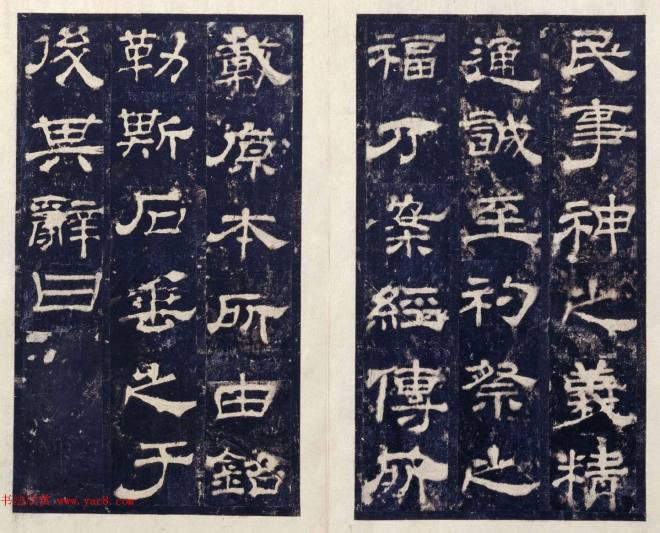 民事神之義精
通誠至礿祭之
福乃案經傳所
載原本所由銘
勒斯石垂之于
後其辭曰
书法欣赏 www.yac8.com